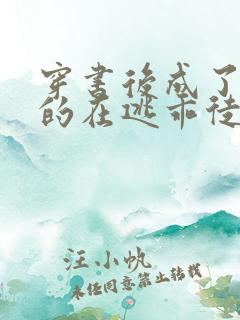 穿书后成了
的在逃乖徒
汪小帆
未经同意禁止转载